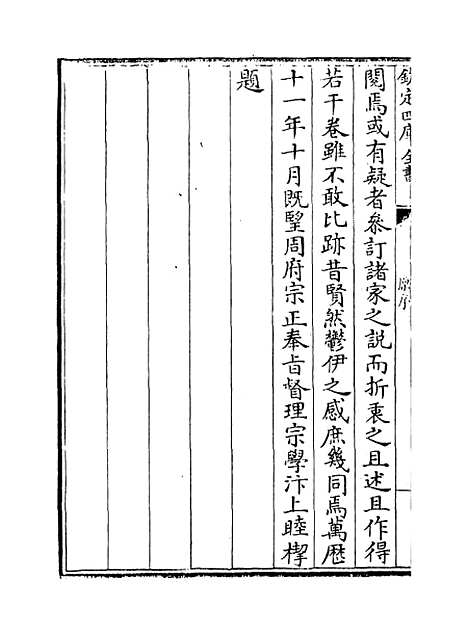 欽定四庫全書
原序
閱焉或有疑者參訂諸家之説而折衷之且述且作得
若干卷雖不敢比跡昔賢然鬱伊之感庶幾同焉萬厯
十一年十月既朢周府宗正奉旨督理宗學汴上睦㮮
題